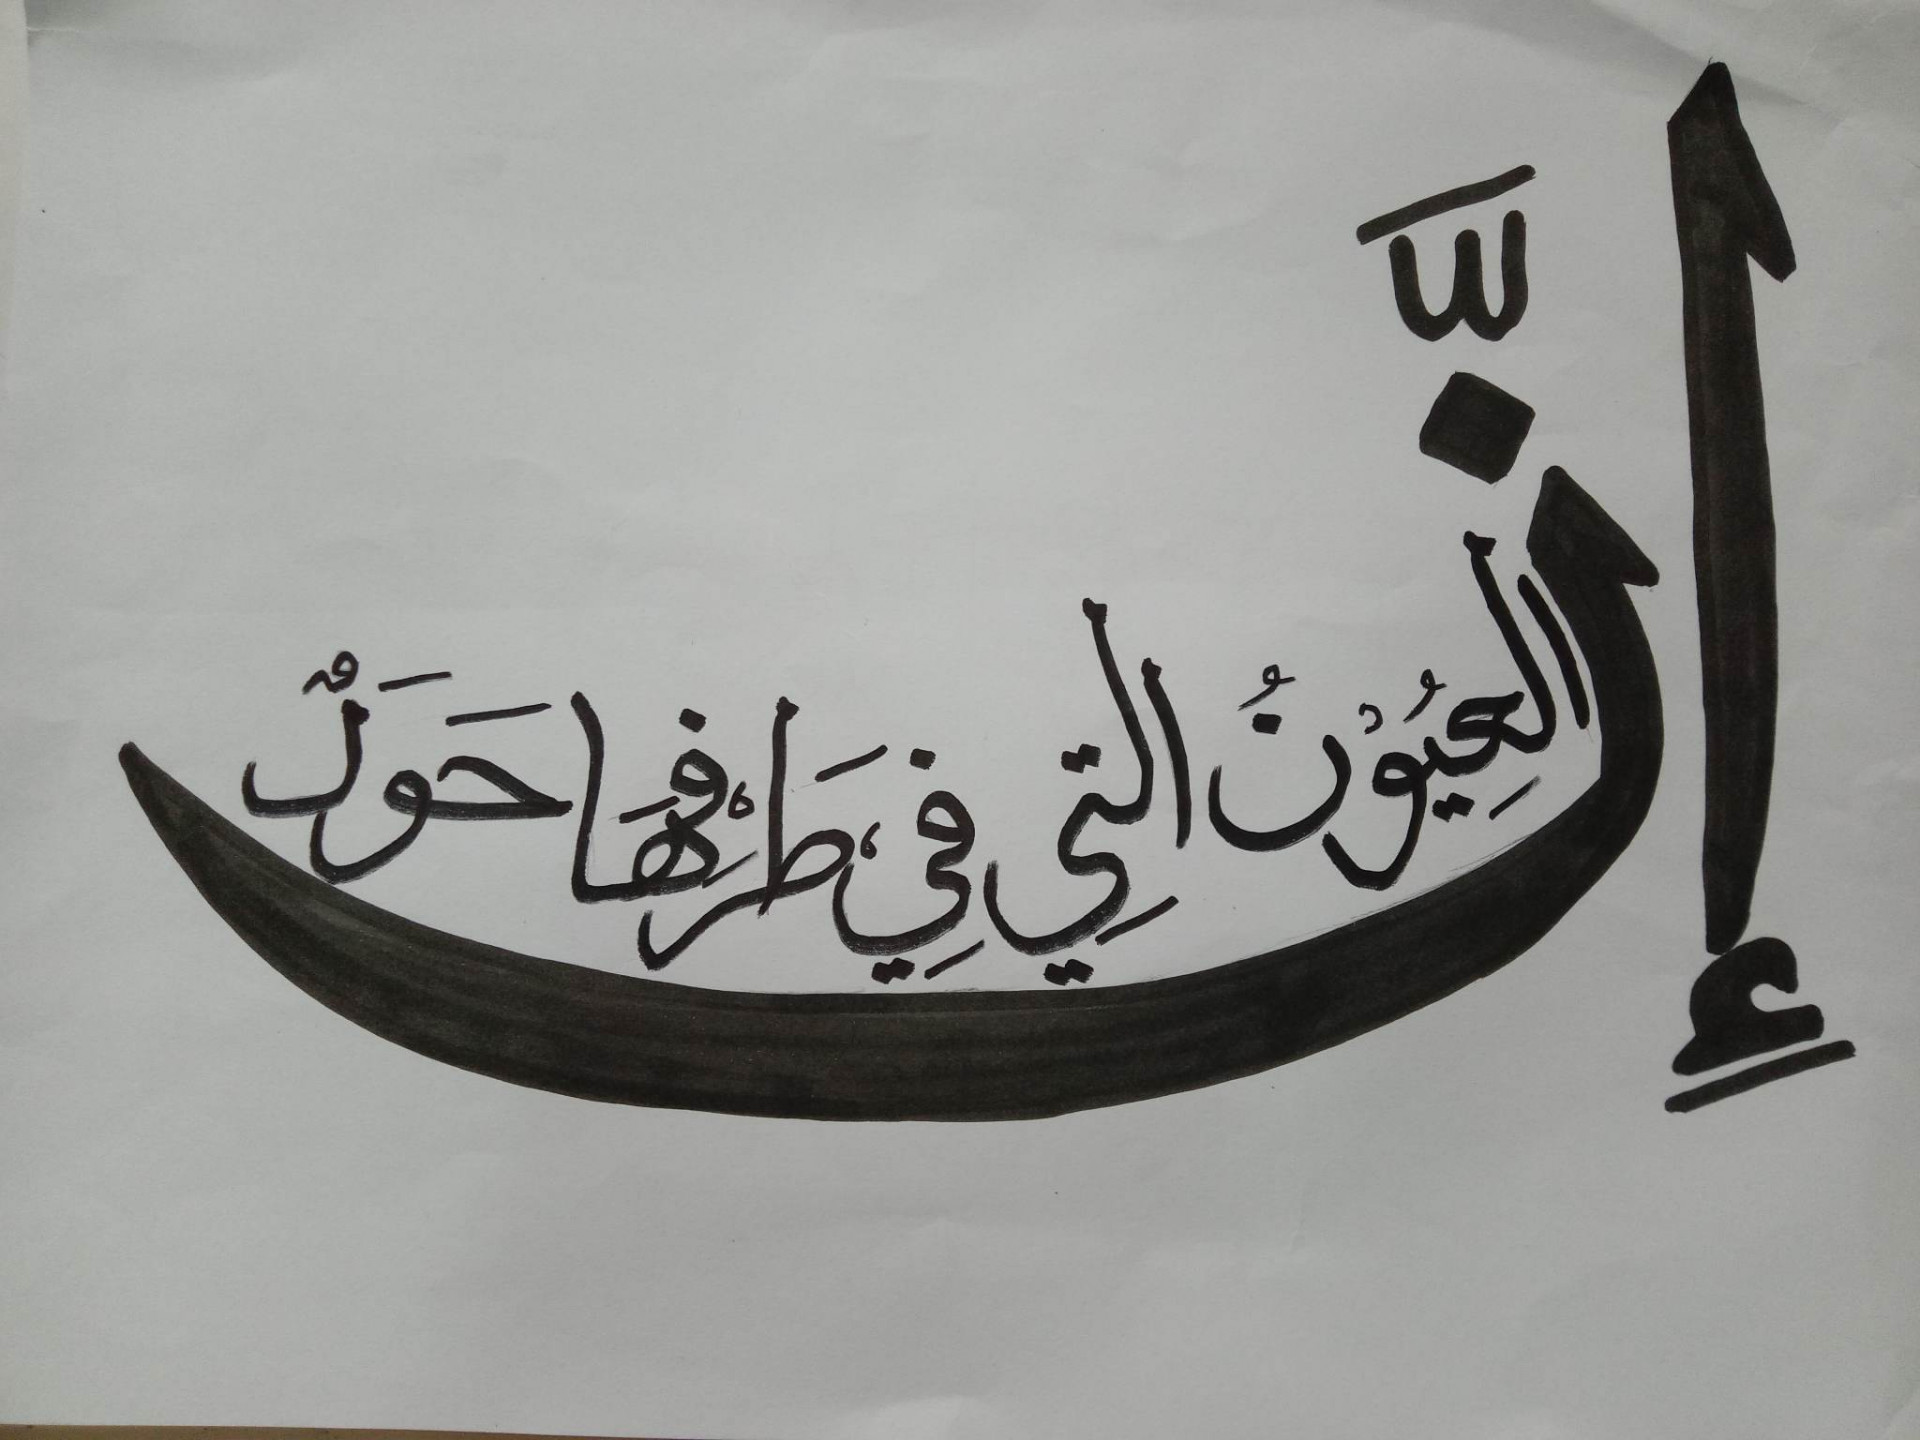 إِنَّ العِيُوْنُ التِي فِيْ طَرْفِهَا حَوَلٌ